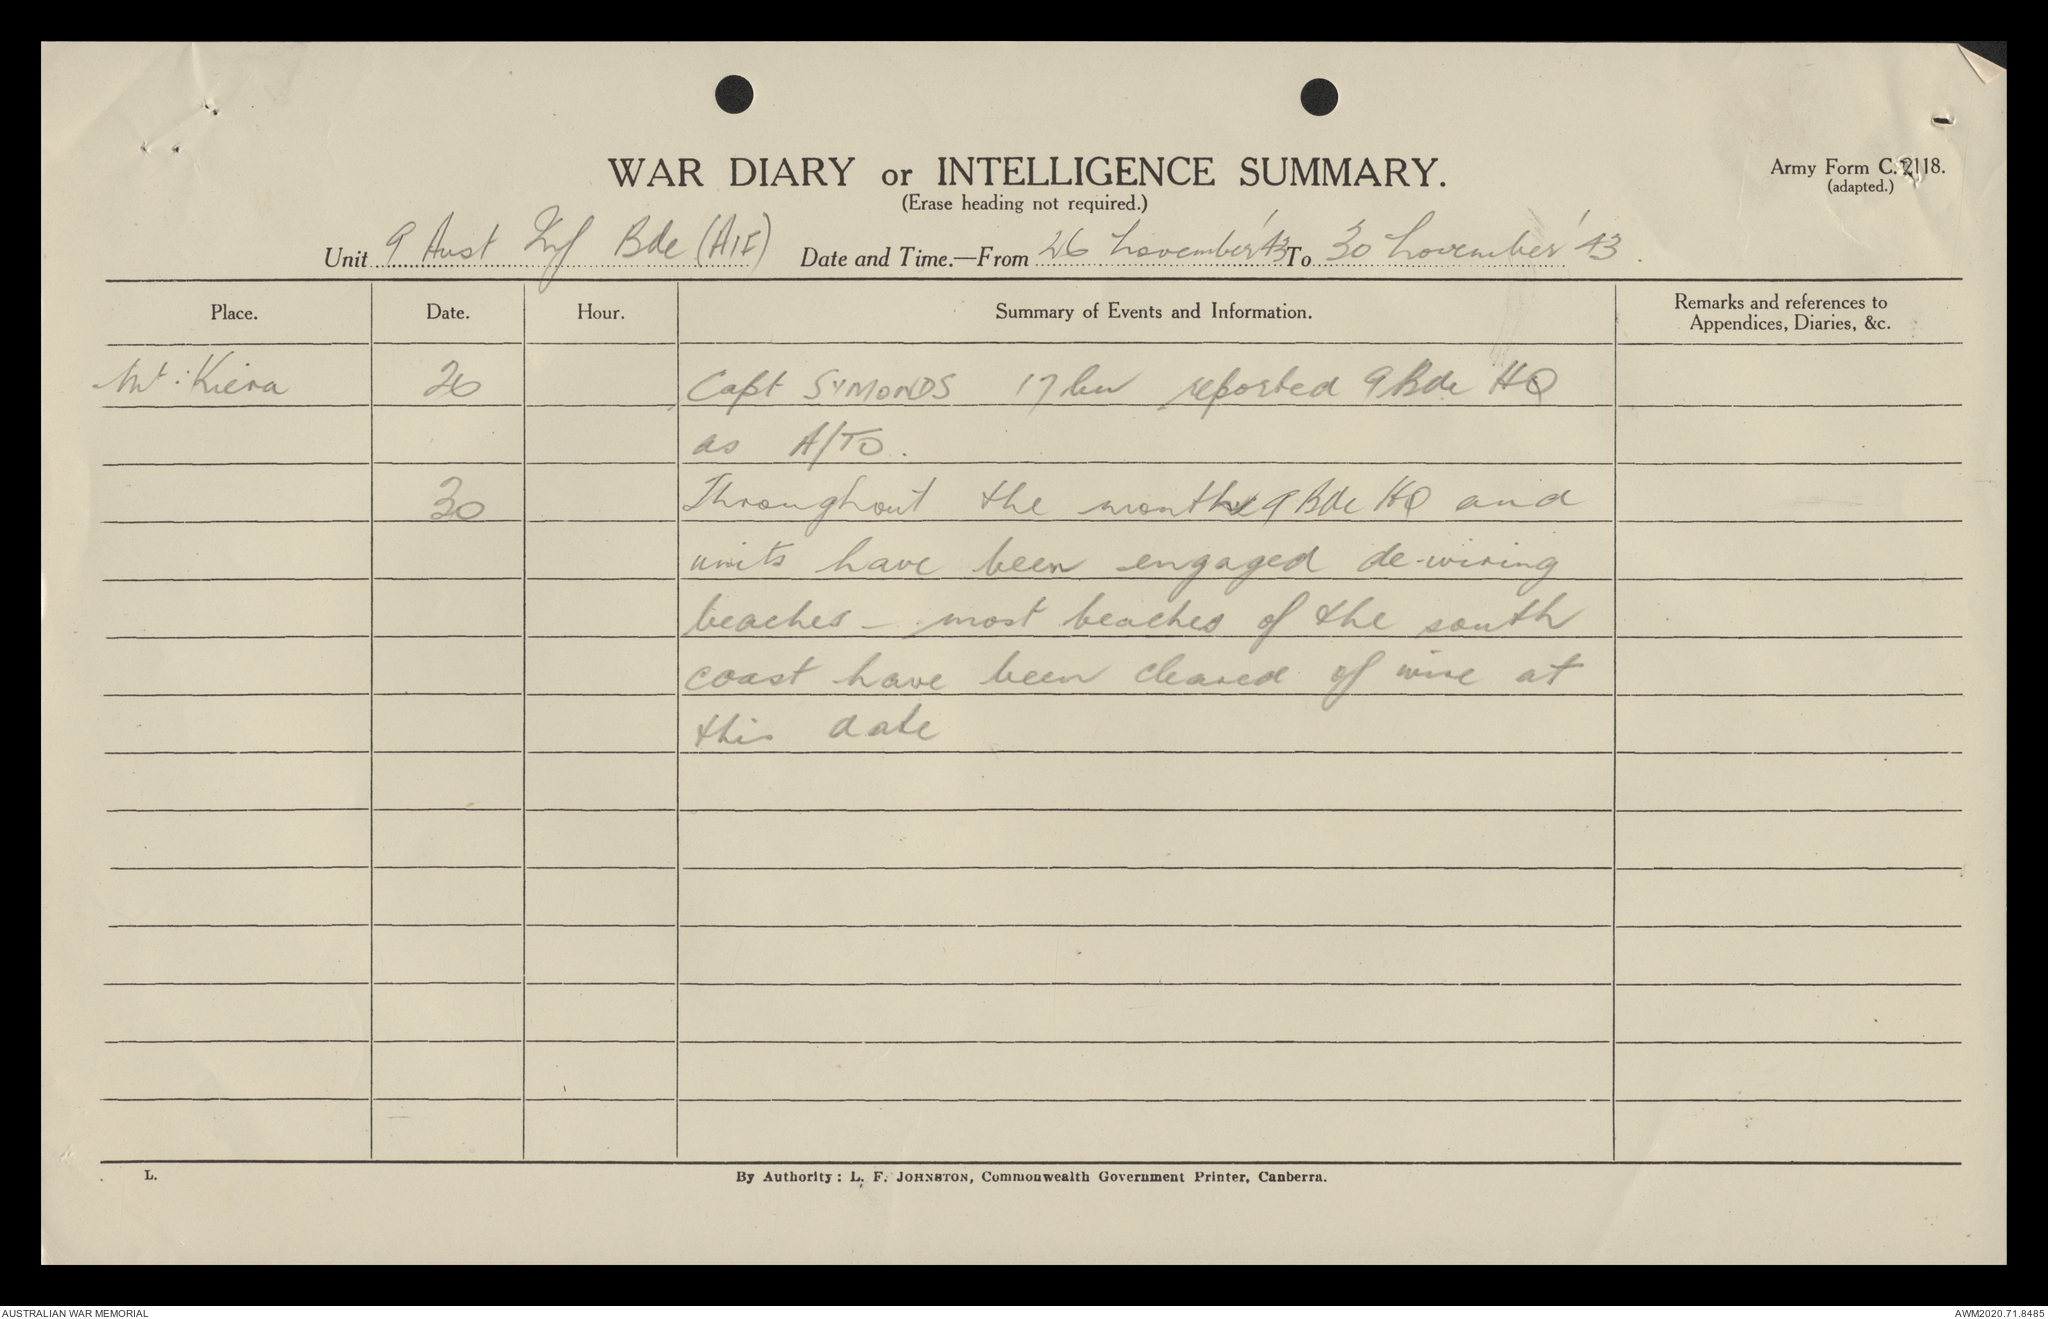 WAR DIARY or INTELLIGENCE SUMMARY.
(Erase heading not required.)
Army Form C. 2118.
(adapted.)
Unit 9 Aust Inf Bde (AIF) Date and Time.—From 26 November '43 To 30 November '43.
Place. Date. Hour. Summary of Events and Information. Remarks and references to
Appendices, Diaries, &c.
Mt. Kiera 26 Capt SYMONDS 17 Bn reported 9 Bde HQ
as A/TO.
30 Throughout the month 9 Bde HQ and
units have been engaged de-wiring
beaches - most beaches of the south
coast have been cleared of wire at
this date
L. By Authority: L. F. JOHNSTON, Commonwealth Government Printer, Canberra.
AUSTRALIAN WAR MEMORIAL AWM2020.71.8485